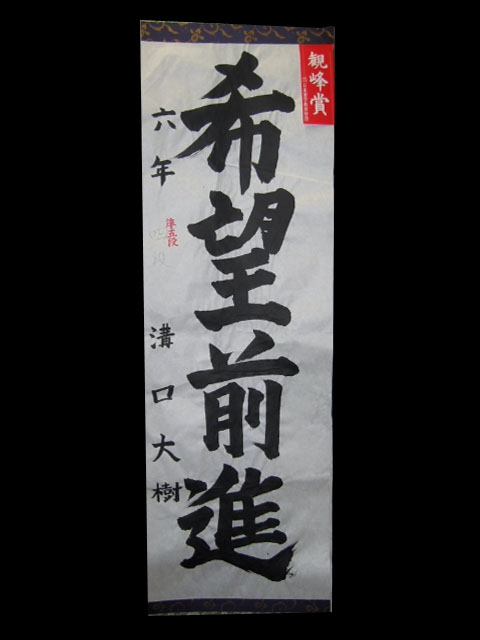 観峰賞
希望前進
準五段
四段
六年 溝口大樹